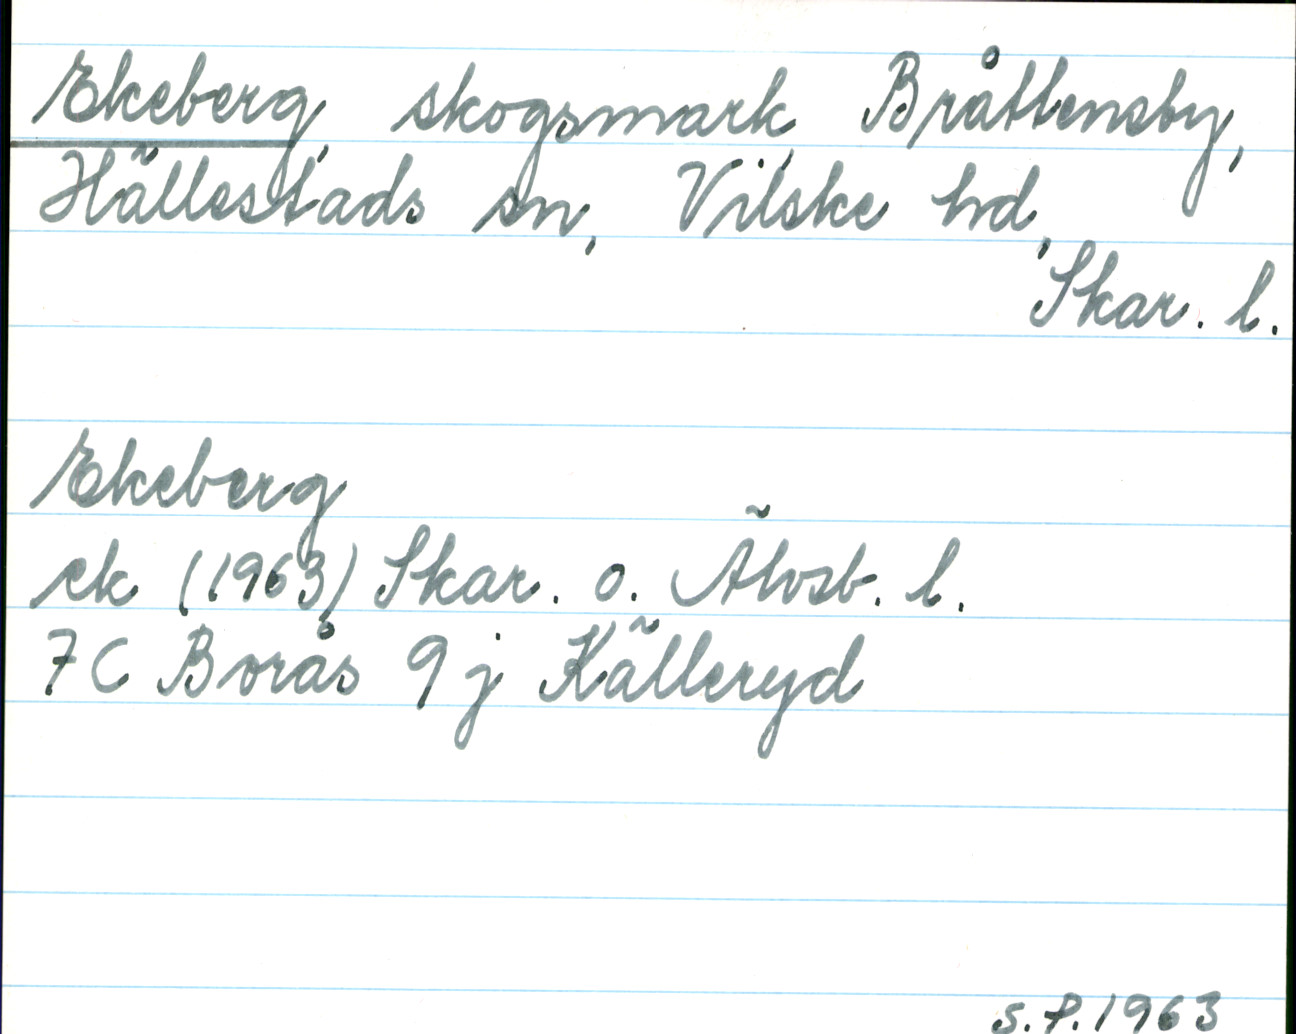 Ekeberg, skogsmark, Bråttensby,
Hällestads sn, Vilske hd,
Skar. l.
Ekeberg
ek (1963) Skar. o. Älvsb. l.
7C Borås 9j Källeryd
s.f. 1963